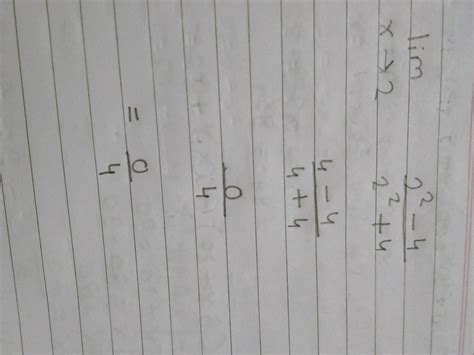 lim
x→2 (2² - 4)/(2² + 4)
(4 - 4)/(4 + 4)
0/4
= 0/4